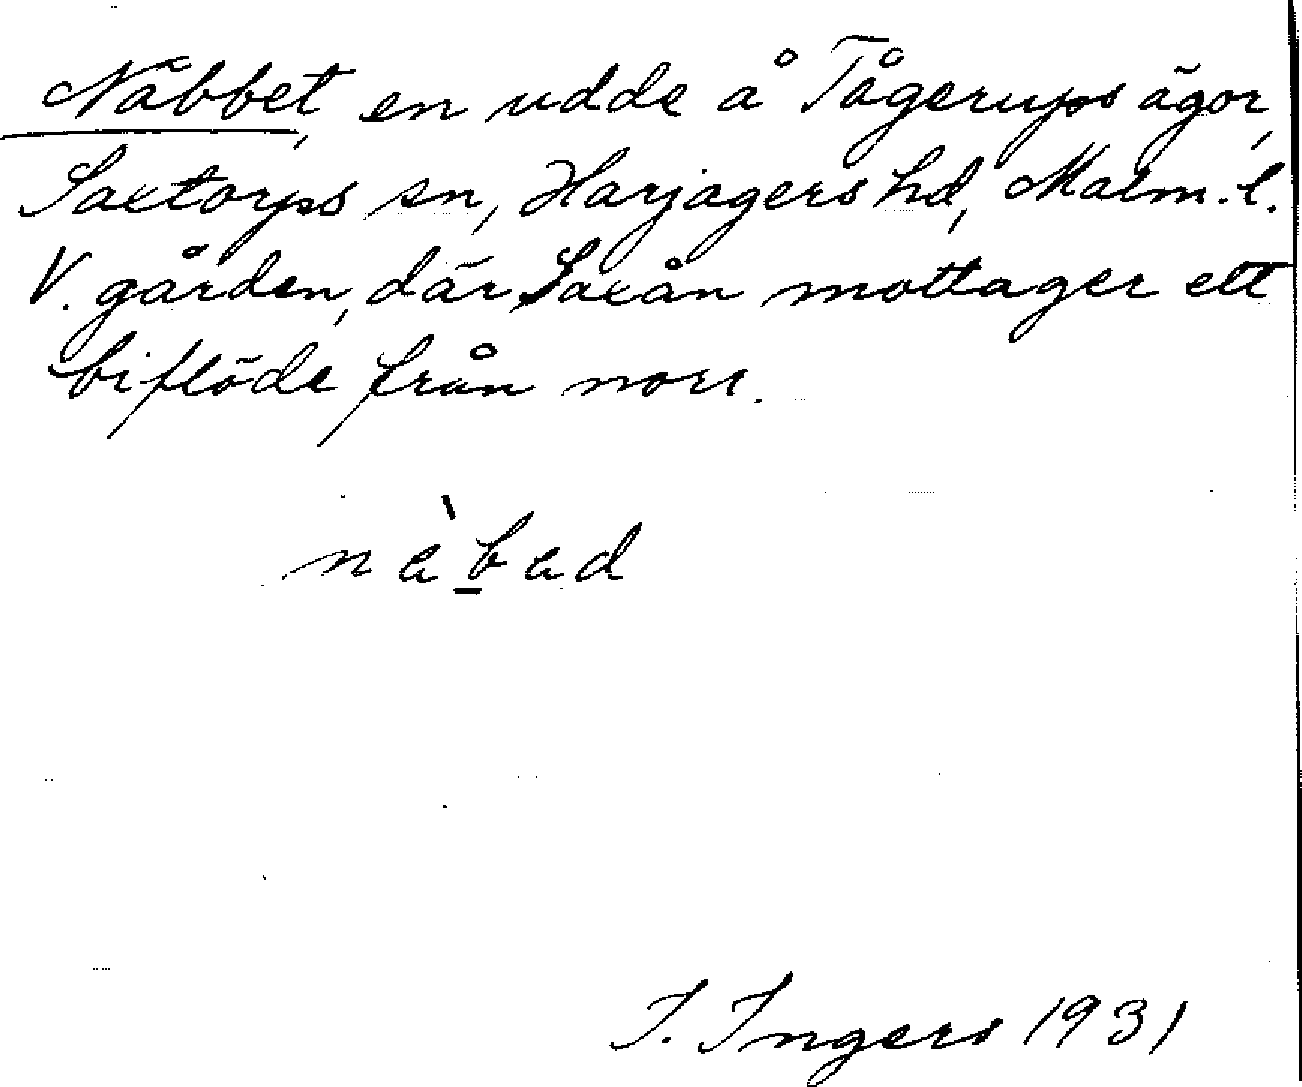 Näbbet, en udde å Tågerups ägor,
Saxtorps sn, Harjagers hd, Malm. l.
V. gården, där Saxån mottager ett
biflöde från norr.
nàbad
I. Ingers 1931